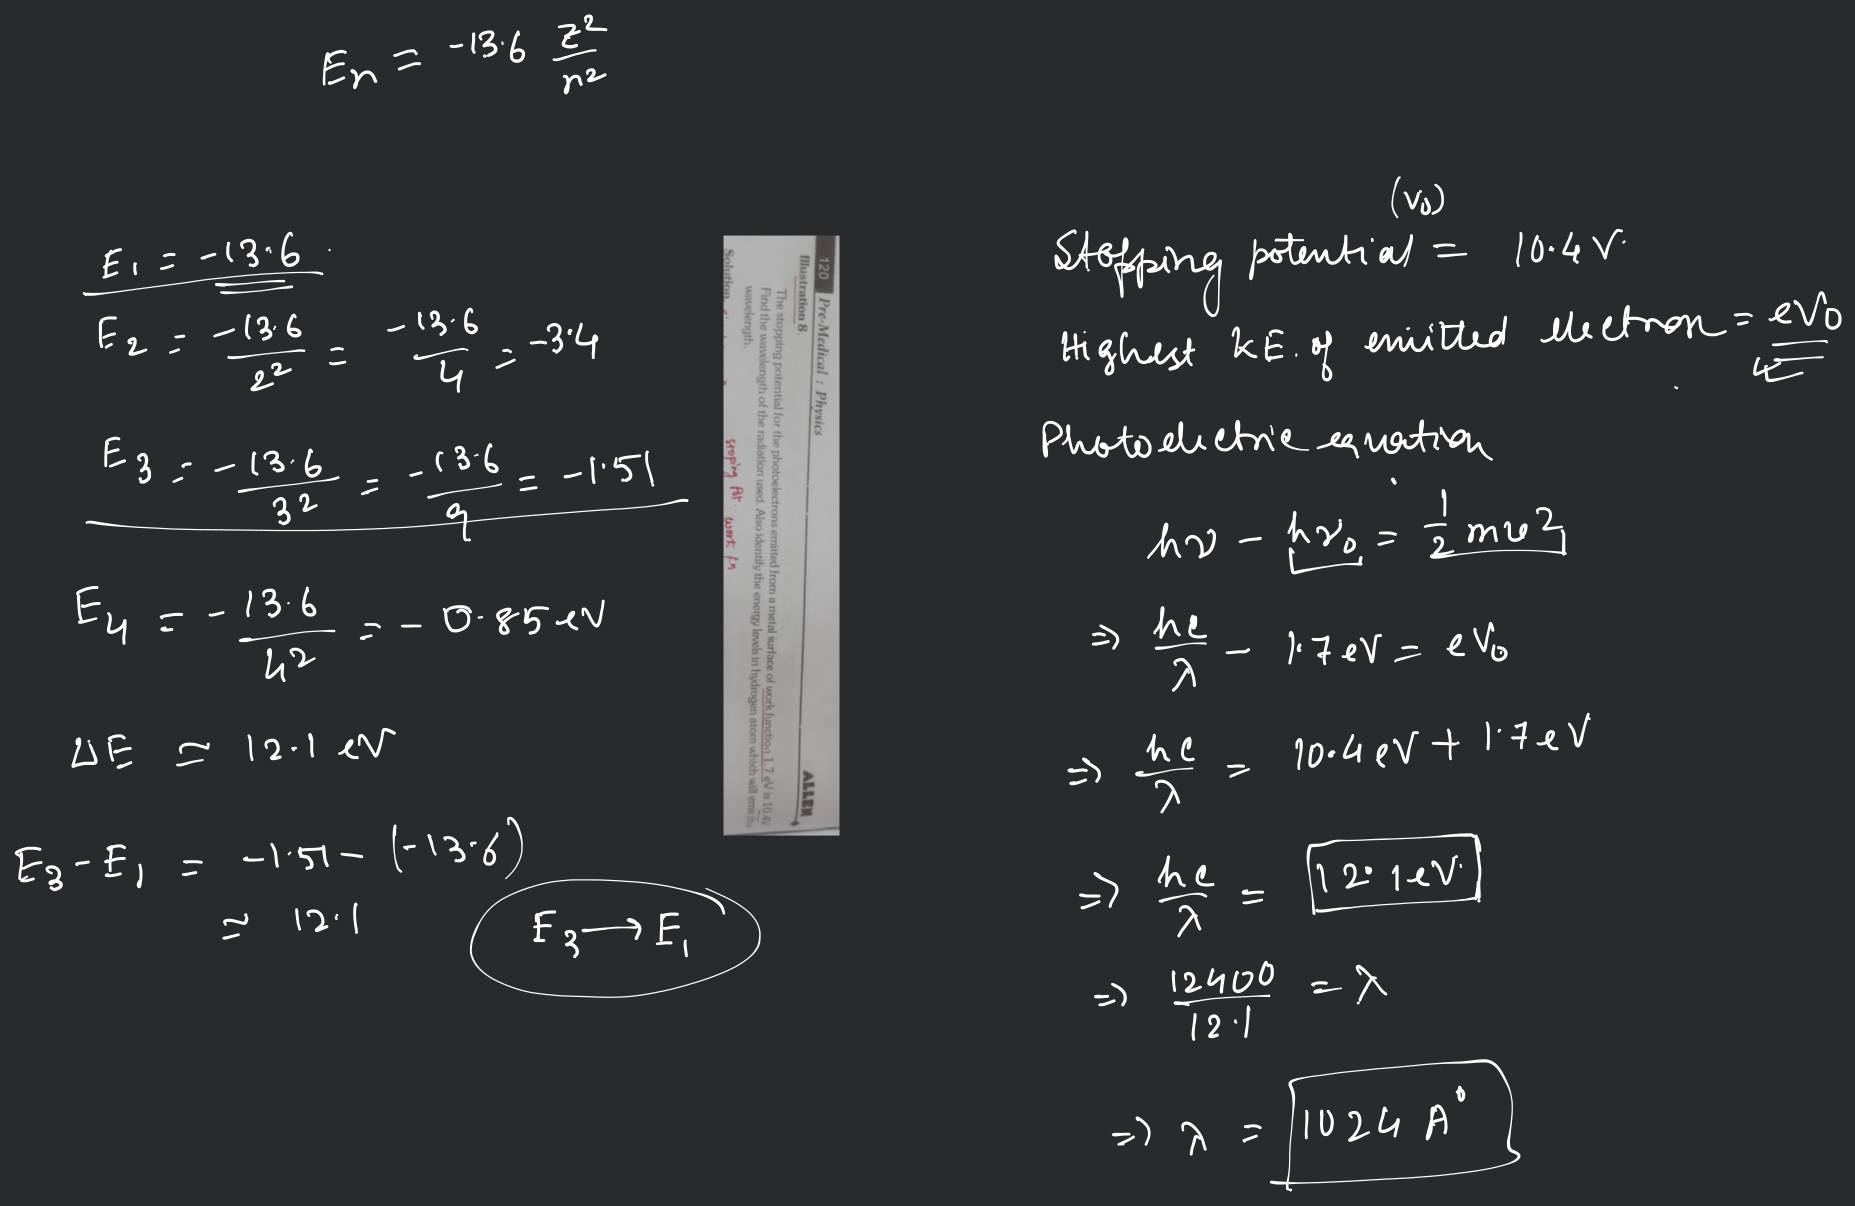 En = -13.6 z²/n²
E₁ = -13.6
E₂ = -13.6/2² = -13.6/4 = -3.4
E₃ = -13.6/3² = -13.6/9 = -1.51
E₄ = -13.6/4² = -0.85 eV
ΔE ≃ 12.1 eV
E₃ - E₁ = -1.51 - (-13.6)
≃ 12.1
E₃ → E₁
120 Pre-Medical : Physics ALLEN
Illustration 8
The stopping potential for the photoelectrons emitted from a metal surface of work function 1.7 eV is 10.4V.
Find the wavelength of the radiation used. Also identify the energy levels in hydrogen atom which will emit this
wavelength.
Solution
stoping Pot. work fn
(V₀)
Stopping potential = 10.4 V.
Highest KE. of emitted electron = eV₀
Photoelectric equation
hν - hν₀ = 1/2 mv²
⇒ hc/λ - 1.7 eV = eV₀
⇒ hc/λ = 10.4 eV + 1.7 eV
⇒ hc/λ = 12.1 eV.
⇒ 12400/12.1 = λ
⇒ λ = 1024 A°